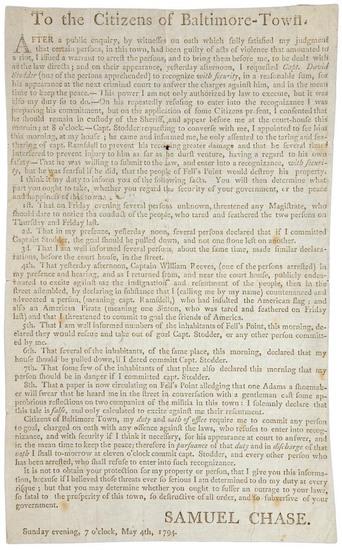 To the Citizens of Baltimore-Town.
AFTER a public enquiry, by witnesses on oath which fully satisfied my judgment
that certain persons, in this town, had been guilty of acts of violence that amounted to
a riot, I issued a warrant to arrest the persons, and to bring them before me, to be dealt with
as the law directs; and on their appearance, yesterday afternoon, I requested Capt. David
Stodder (one of the persons apprehended) to recognize with security, in a reasonable sum, for
his appearance at the next criminal court to answer the charges against him, and in the mean
time to keep the peace.—This power I am not only authorised by law to execute, but it was
also my duty so to do.—On his repeatedly refusing to enter into the recognizance I was
preparing his commitment, but on the application of some Citizens present, I consented that
he should remain in custody of the Sheriff, and appear before me at the court-house this
morning; at 8 o'clock.—Capt. Stodder requesting to converse with me, I appointed to see him
this morning, at my house; he came and informed me, he only assented to the taring and fea-
thering of capt. Ramsdell to prevent his receiving greater damage and that he several times
interfered to prevent injury to him as far as he durst venture, having a regard to his own
safety—That he was willing to submit to the law, and enter into a recognizance, with secur-
ity, but he was fearful if he did, that the people of Fell's Point would destroy his property.
I think it my duty to inform you of the following facts. You will then determine what
part you ought to take, whether you regard the security of your government, or the peace
and happiness of this town.
1st. That on Friday evening several persons unknown, threatened any Magistrate, who
should dare to notice the conduct of the people, who tared and feathered the two persons on
Thursday and Friday last.
2d. That in my presence, yesterday noon, several persons declared that if I committed
Captain Stodder, the goal should be pulled down, and not one stone left on another.
3d. That I am well informed several persons, about the same time, made similar declara-
tions, before the court house, in the street.
4th. That yesterday afternoon, Captain William Reeves, (one of the persons arrested) in
my presence and hearing, and as I returned from, and near the court house, publicly endea-
voured to excite against me the indignation and resentment of the people, then in the
street assembled, by declaring in substance that I (calling me by my name) countenanced and
advocated a person, (meaning capt. Ramsdell,) who had insulted the American flag; and
also an American Pirate (meaning one Senton, who was tared and feathered on Friday
last) and that I threatened to commit to goal the friends of America.
5th. That I am well informed numbers of the inhabitants of Fell's Point, this morning, de-
clared they would rescue and take out of goal Capt. Stodder, or any other person committ-
ed by me.
6th. That several of the inhabitants, of the same place, this morning, declared that my
house should be pulled down, if I dared commit Capt. Stodder.
7th. That some few of the inhabitants of that place also declared this morning that my
person should be in danger if I committed capt. Stodder.
8th. That a paper is now circulating on Fell's Point alledging that one Adams a shoemak-
er will swear that he heard me in the street in conversation with a gentleman cast some ap-
probrious reflections on two companies of the militia in this town: I solemnly declare that
this tale is false, and only calculated to excite against me their resentment.
Citizens of Baltimore Town, my duty and oath of office require me to commit any person
to goal, charged on oath with any offence against the laws, who refuses to enter into recog-
nizance, and with security if I think it necessary, for his appearance at court to answer, and
in the mean time to keep the peace; therefore in pursuance of that duty and in discharge of that
oath I shall to-morrow at eleven o'clock commit capt. Stodder, and every other person who
has been arrested, who shall refuse to enter into such recognizance.
It is not to obtain your protection for my property or person, that I give you this informa-
tion, because if I believed those threats ever so serious I am determined to do my duty at every
risque; but that you may determine whether you ought to suffer an outrage to your laws,
so fatal to the prosperity of this town, so destructive of all order, and so subversive of your
government.
SAMUEL CHASE.
Sunday evening, 7 o'clock, May 4th, 1794.